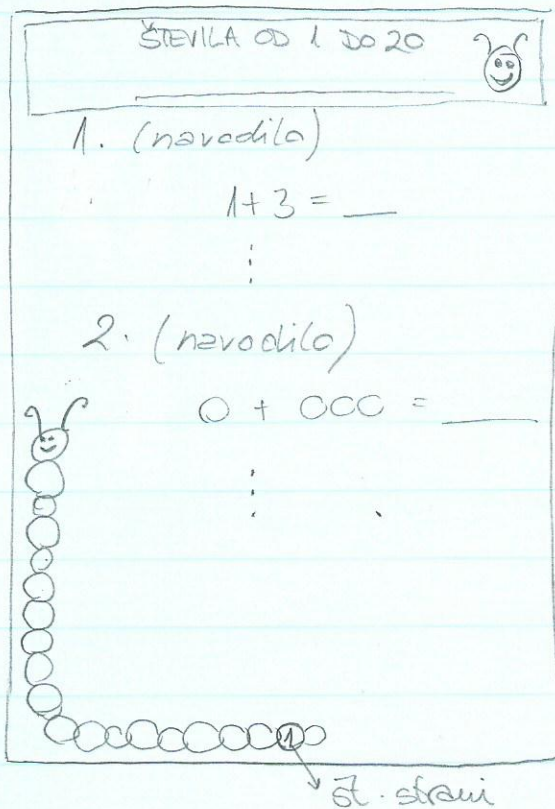 ŠTEVILA OD 1 DO 20
1. (navodilo)
1 + 3 = __
2. (navodilo)
O + OOO = ____
1
št. strani